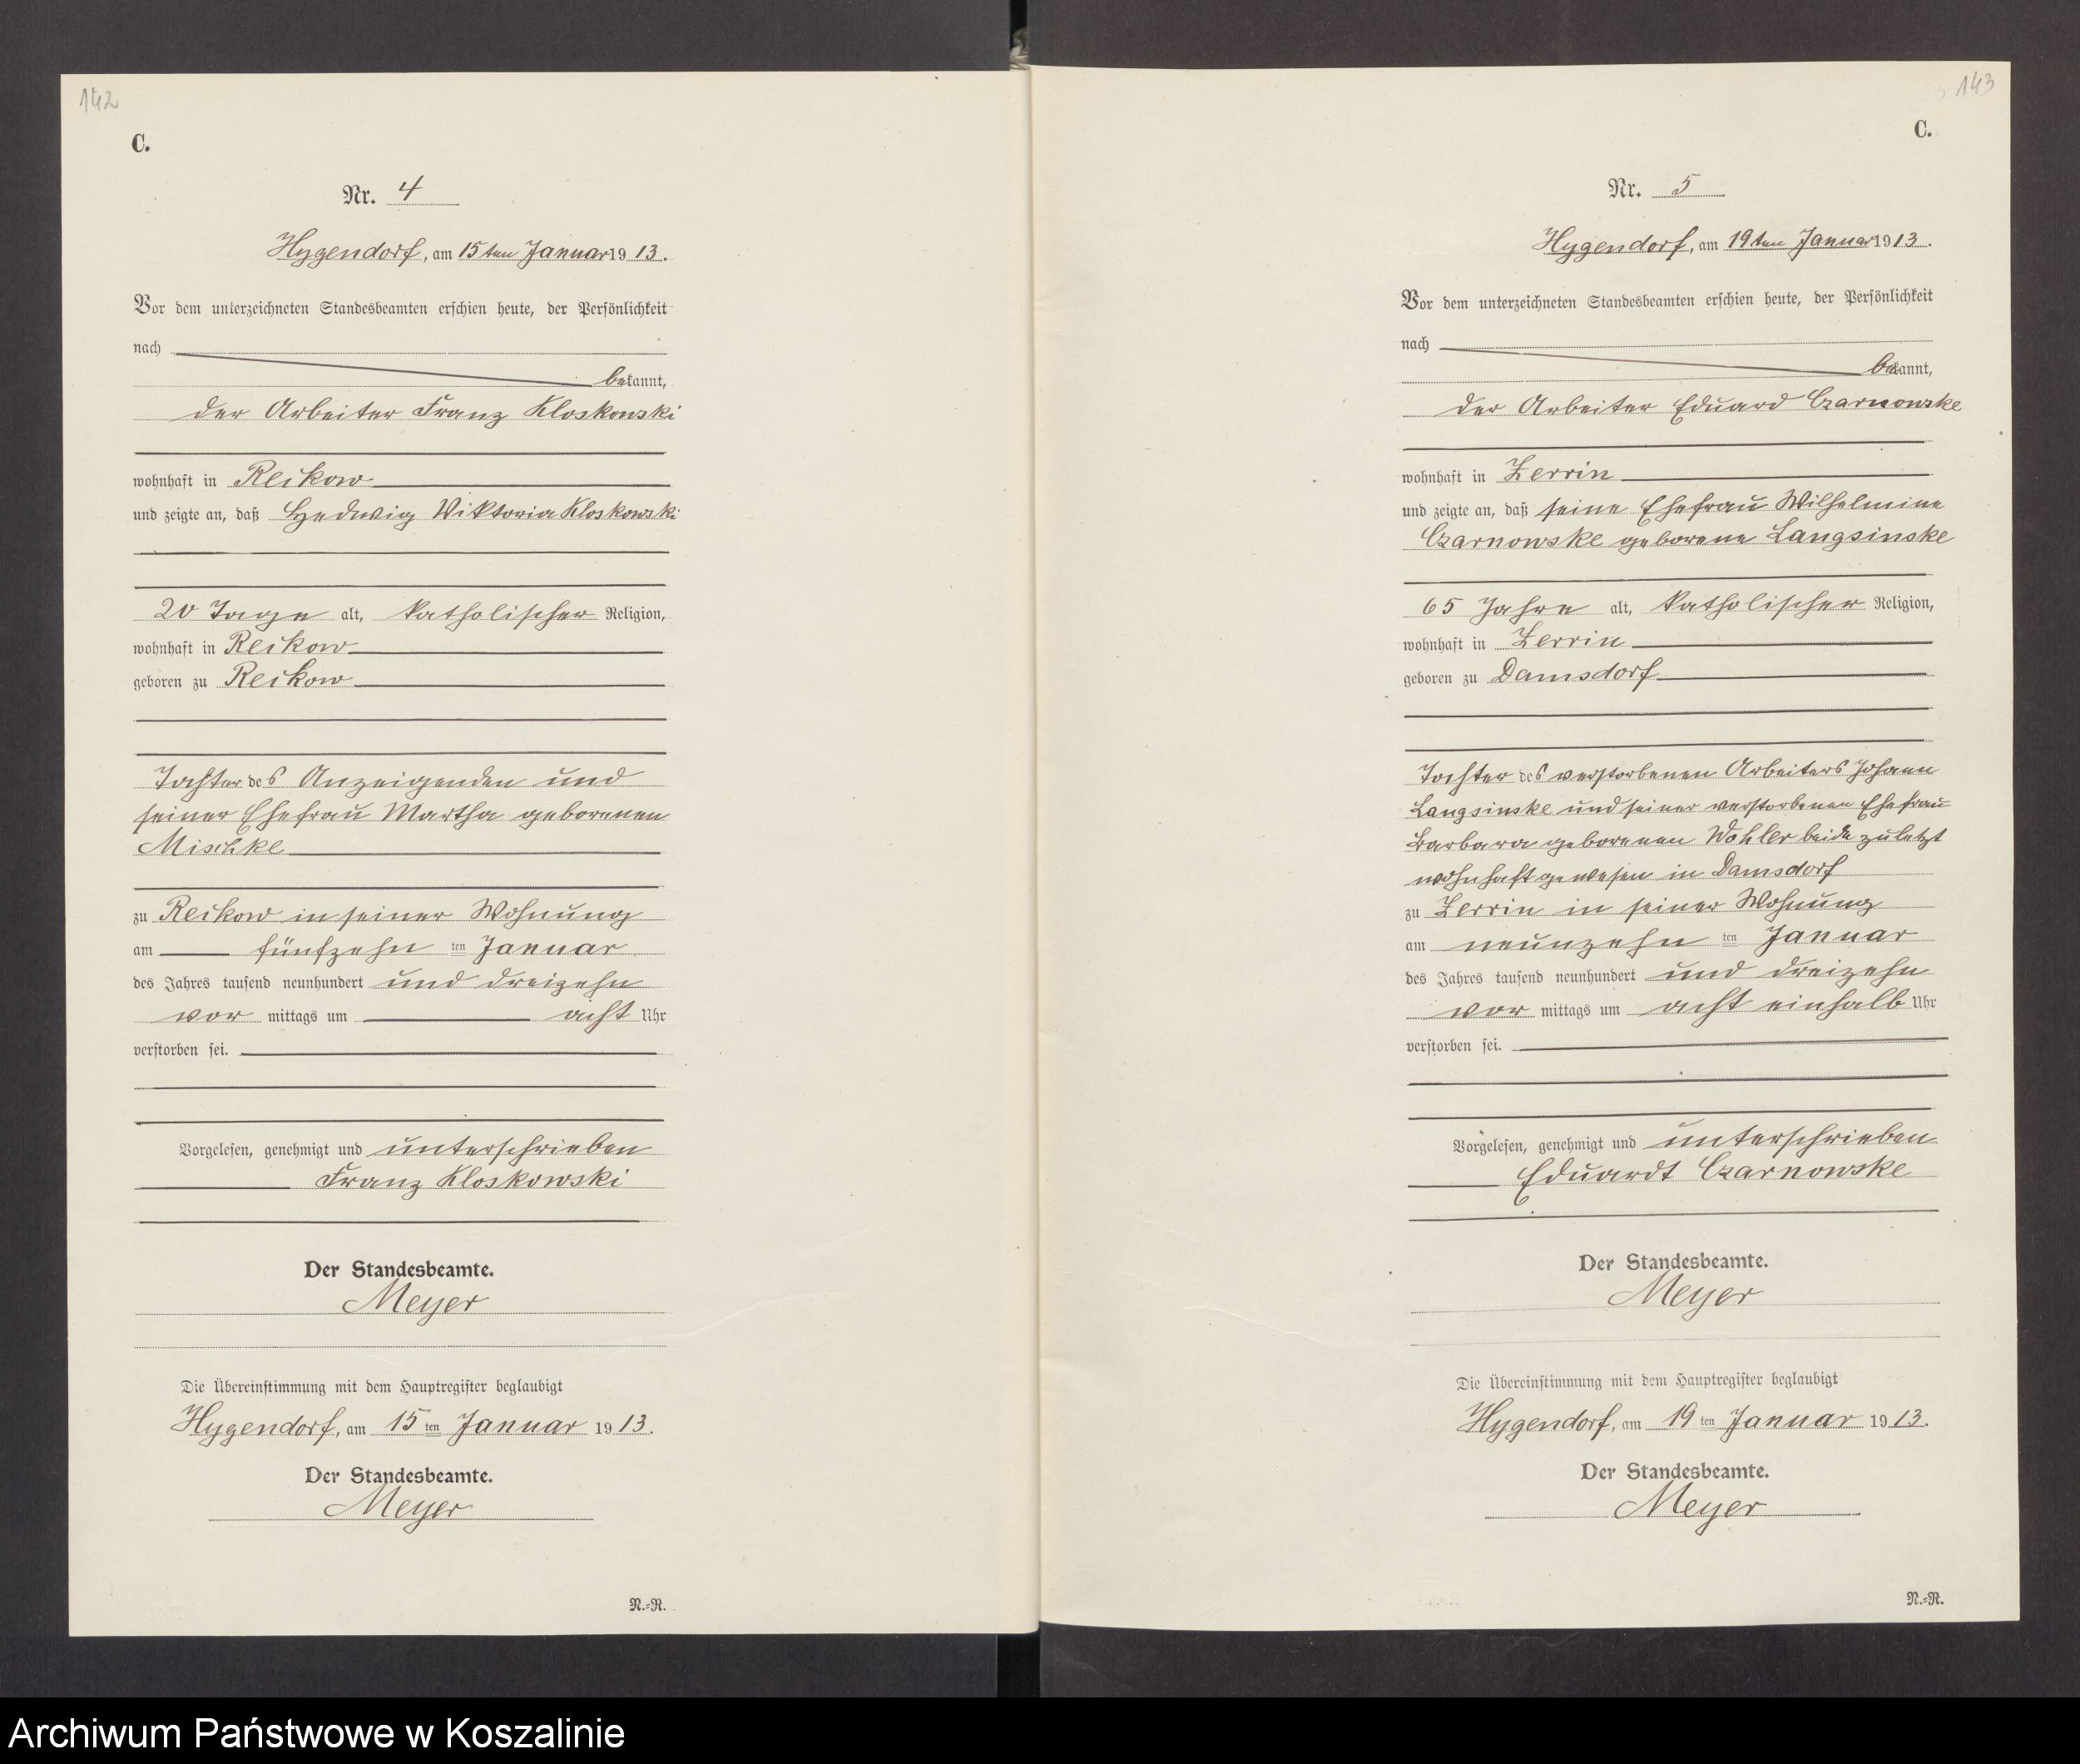 142
C.
Nr. 4
Hygendorf, am 15ten Januar 1913.
Vor dem unterzeichneten Standesbeamten erschien heute, der Persönlichkeit
nach
bekannt,
der Arbeiter Franz Kloskowski
wohnhaft in Reikow
und zeigte an, daß Hedwig Viktoria Kloskowski
20 Tage alt, katholischer Religion,
wohnhaft in Reikow
geboren zu Reikow
Tochter des Anzeigenden und
seiner Ehefrau Martha geborenen
Mischke
zu Reikow in seiner Wohnung
am fünfzehn ten Januar
des Jahres tausend neunhundert und dreizehn
vor mittags um acht Uhr
verstorben sei.
Vorgelesen, genehmigt und unterschrieben
Franz Kloskowski
Der Standesbeamte.
Meyer
Die Übereinstimmung mit dem Hauptregister beglaubigt
Hygendorf, am 15 ten Januar 1913.
Der Standesbeamte.
Meyer
N.-R.
143
C.
Nr. 5
Hygendorf, am 19ten Januar 1913.
Vor dem unterzeichneten Standesbeamten erschien heute, der Persönlichkeit
nach
bekannt,
der Arbeiter Eduard Czarnowske
wohnhaft in Zerrin
und zeigte an, daß seine Ehefrau Wilhelmine
Czarnowske geborene Langsinske
65 Jahre alt, katholischer Religion,
wohnhaft in Zerrin
geboren zu Damsdorf
Tochter des verstorbenen Arbeiters Johann
Langsinske und seiner verstorbenen Ehefrau
Barbara geborenen Wohler beide zuletzt
wohnhaft gewesen in Damsdorf
zu Zerrin in seiner Wohnung
am neunzehn ten Januar
des Jahres tausend neunhundert und dreizehn
vor mittags um acht einhalb Uhr
verstorben sei.
Vorgelesen, genehmigt und unterschrieben
Eduardt Czarnowske
Der Standesbeamte.
Meyer
Die Übereinstimmung mit dem Hauptregister beglaubigt
Hygendorf, am 19 ten Januar 1913.
Der Standesbeamte.
Meyer
N.-R.
Archiwum Państwowe w Koszalinie